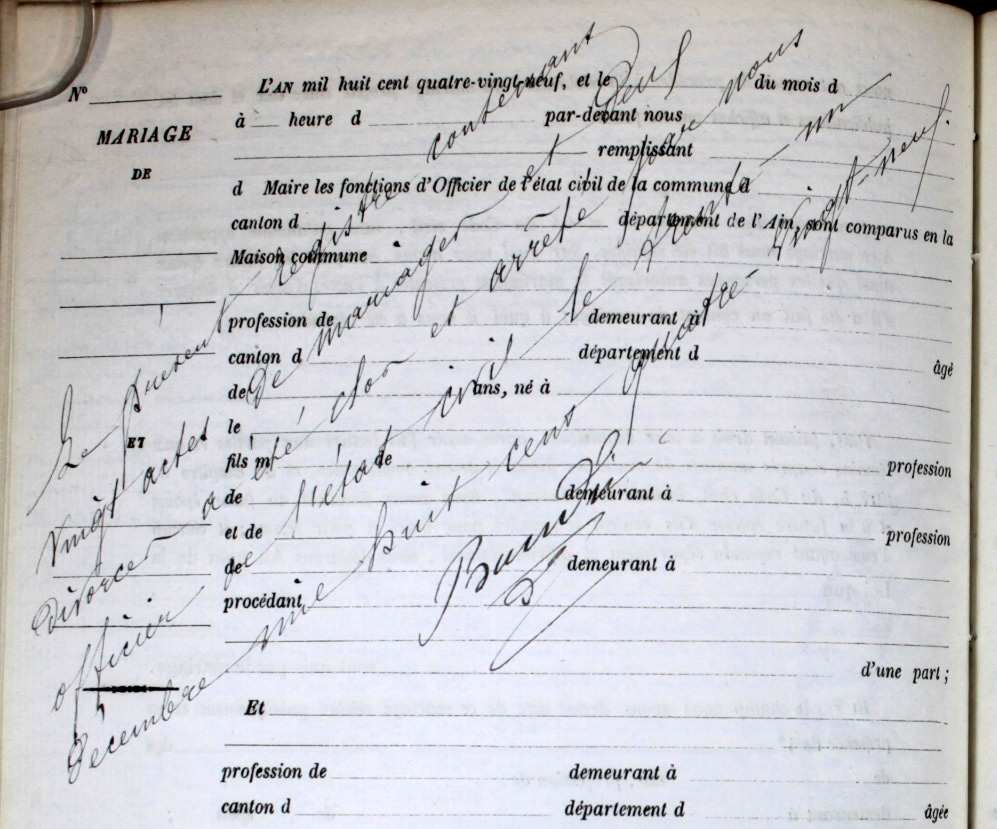 N°
MARIAGE
DE
ET
L'AN mil huit cent quatre-vingt-neuf, et le du mois d
à heure d par-devant nous
remplissant
d Maire les fonctions d'Officier de l'état civil de la commune d
canton d département de l'Ain, sont comparus en la
Maison commune
profession de demeurant à
canton d département d âgé
de ans, né à
le
fils m de
profession
de demeurant à
et de profession
de demeurant à
procédant
d'une part ;
Et
profession de demeurant à
canton d département d âgée
Le présent registre contenant
Vingt actes de mariages et Seul
Divorce a été clos et arrêté par nous
officier de l'état civil le trente-un
décembre mil huit cent quatre-vingt-neuf.